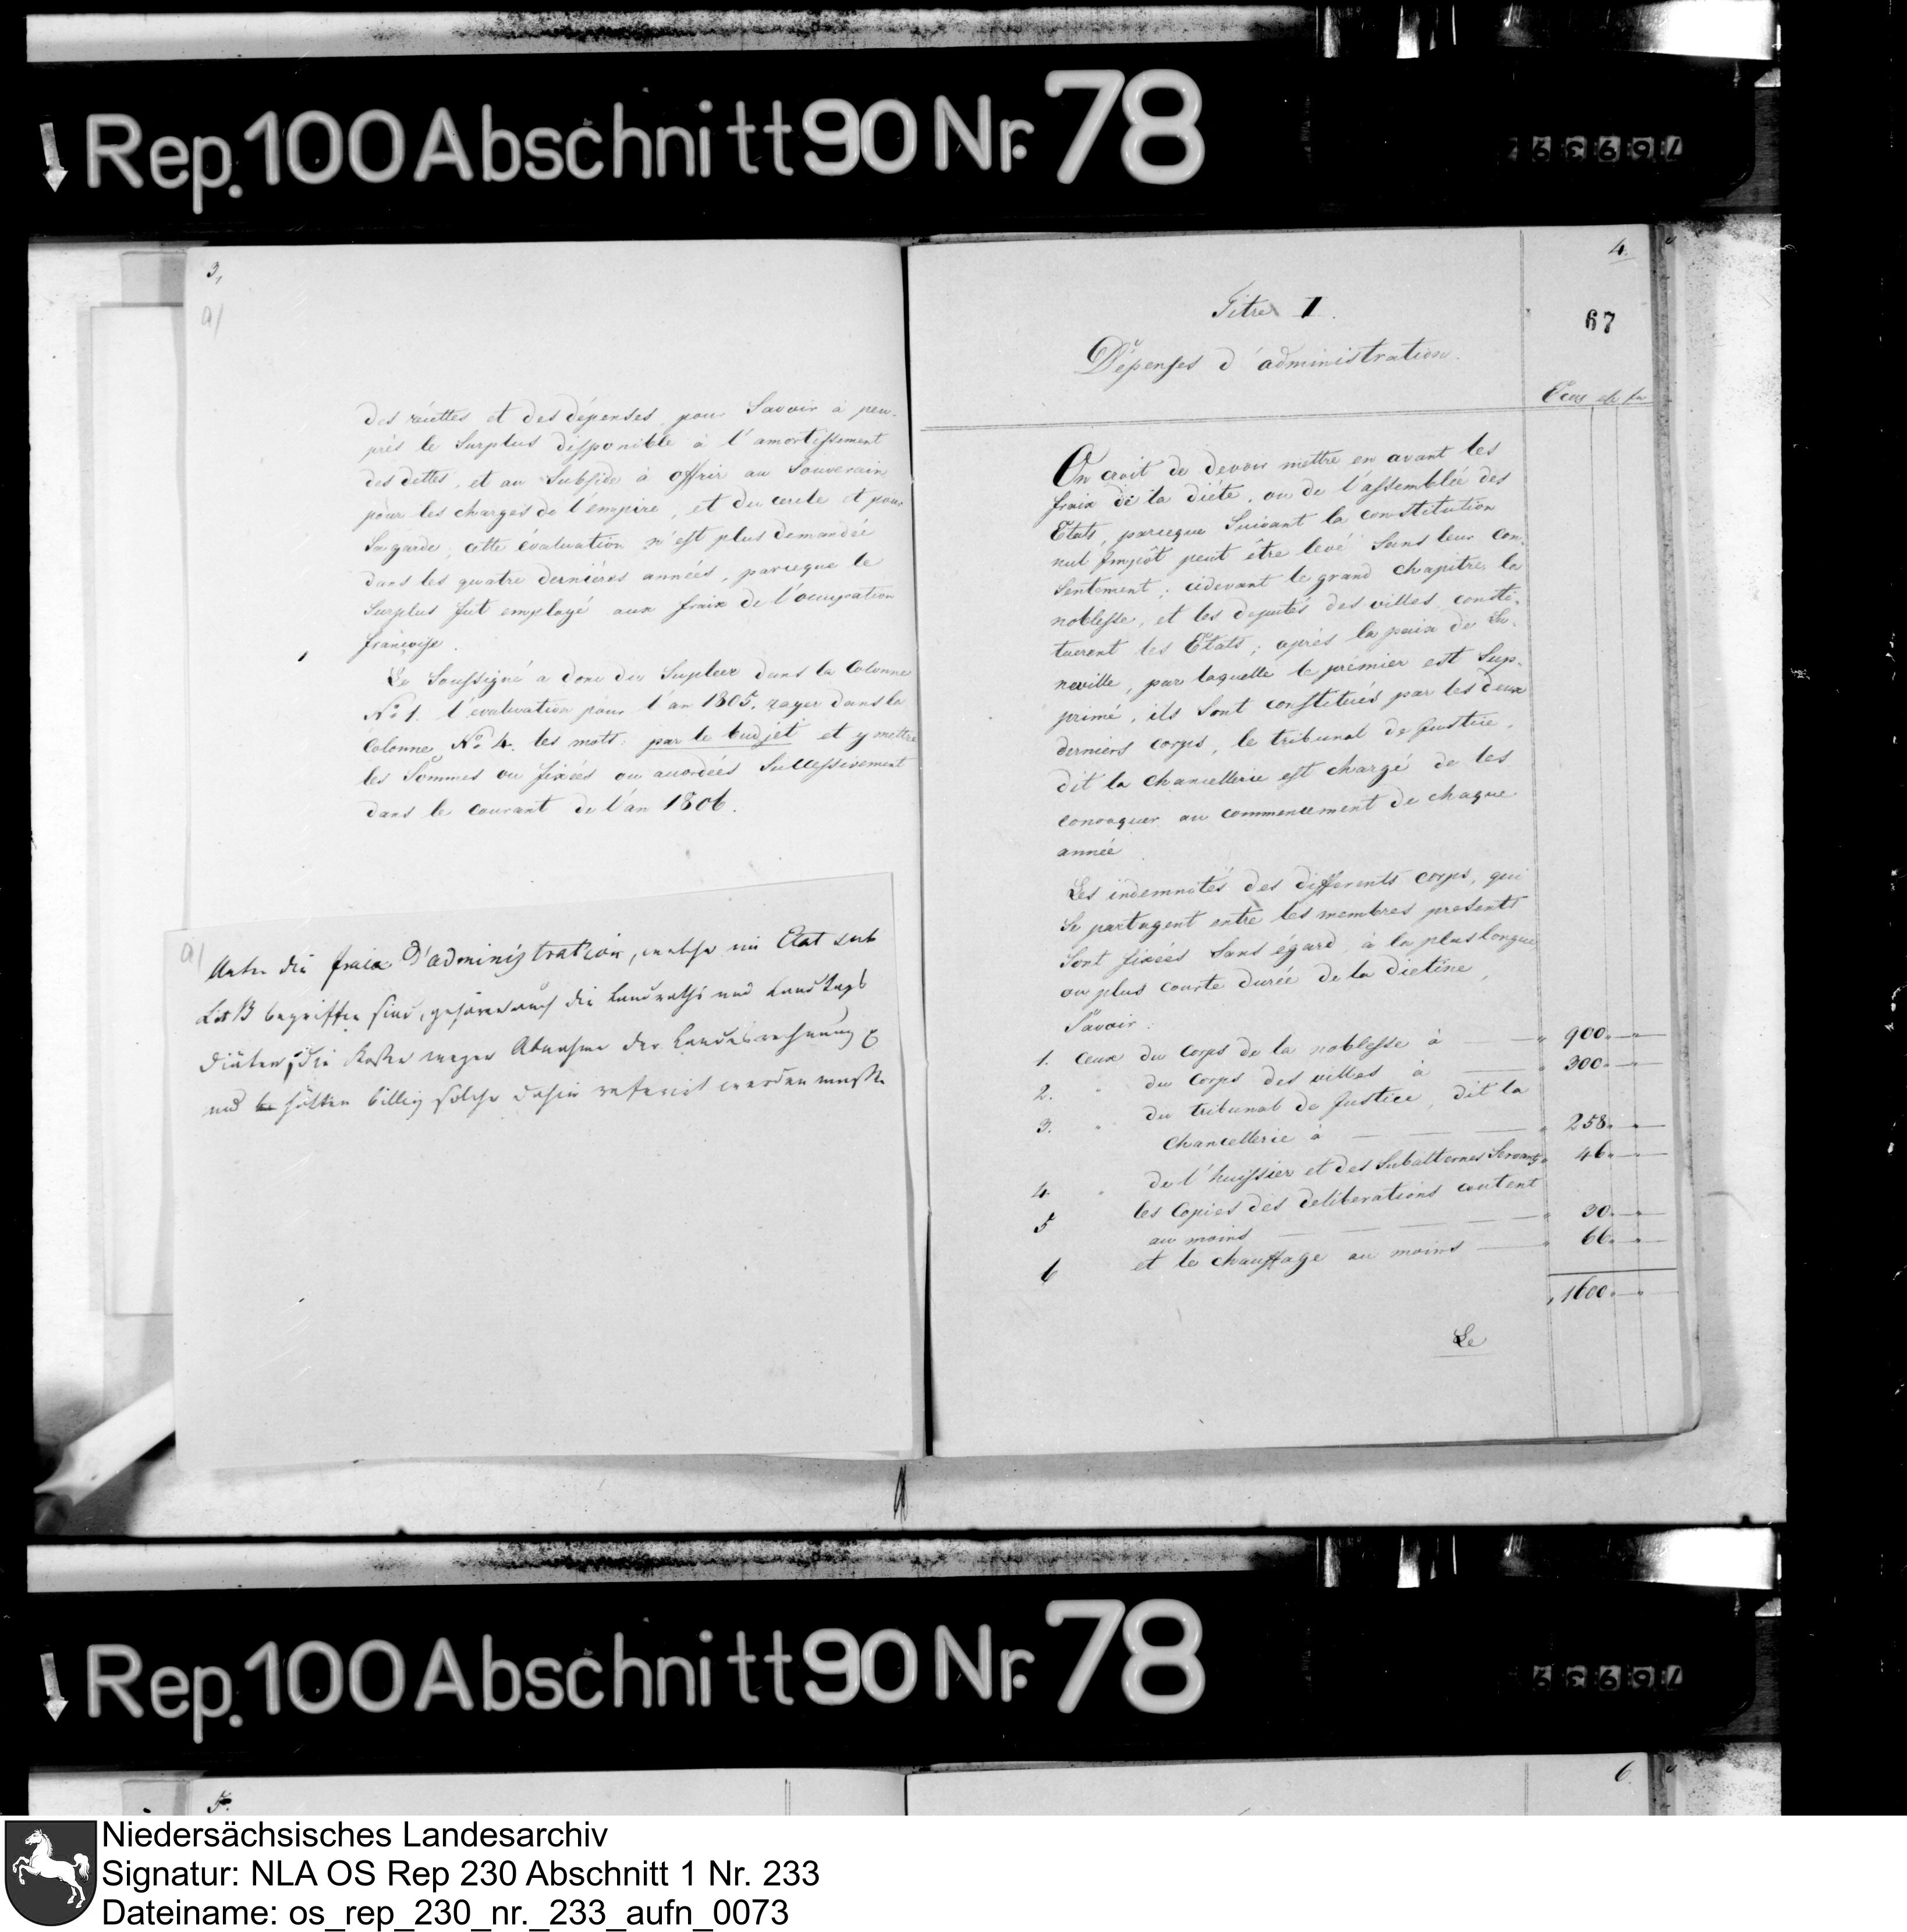 Rep. 100 Abschnitt 90 Nr. 78
3,
a)
des recettes et des dépenses, pour Savoir à peu-
près le Surplus disponible à l'amortissement
des dettes, et au Subside à offrir au Souverain
pour les charges de l'empire, et du cercle et pour
Sa garde, cette évaluation n'est plus demandée
dans les quatre dernières années, parceque le
Surplus fut employé aux fraix de l'occupation
françoise.
Le Soussigné a donc du Supleer dans la Colonne
No 1. l'evaluation pour l'an 1805, rayer dans la
Colonne No 4. les mots: par le budjet et y mettre
les Sommes ou fixées ou accordées Successivement
dans le courant de l'an 1806.
a)
Unter die fraix d'administration, welche im Etat sub
Lit B begriffen sind, gehören auch die Landraths und Landtags
Diäten, die Kosten wegen Abnahme der Landesrechnung
und hätten billig solche dahin referirt werden
4.
67
Titre I.
Dépenses d'administration.
Ecus
On croit de devoir mettre en avant les
fraix de la diéte, ou de l'assemblée des
Etats, parceque Suivant la constitution
nul Impôt peut être levé Sans leur con-
Sentement; cidevant le grand Chapitre, la
noblesse, et les deputés des villes consti-
tuerent les Etats; après la paix de Lu-
neville, par laquelle le premier est Sup-
primé, ils Sont constitués par les deux
derniers corps, le tribunal de Justice,
dit la chancellerie est chargé de les
convoquer au commencement de chaque
année
Les indemnités des differents corps, qui
Se partagent entre les membres presents
Sont fixées Sans égard à la plus longue
ou plus courte durée de la dietine,
Savoir:
1. Ceux du Corps de la noblesse à — " 900. —
2. " du Corps des villes à — " 300. —
3. " du tribunal de Justice, dit la
Chancellerie à — " 258. —
4. " de l'huissier et des Subalternes Servants " 46. —
5 les Copies des deliberations coutent
au moins — " 30. —
6 et le chauffage au moins — " 66. —
1600. —
Le
Rep. 100 Abschnitt 90 Nr. 78
5.
6.
Niedersächsisches Landesarchiv
Signatur: NLA OS Rep 230 Abschnitt 1 Nr. 233
Dateiname: os_rep_230_nr._233_aufn_0073